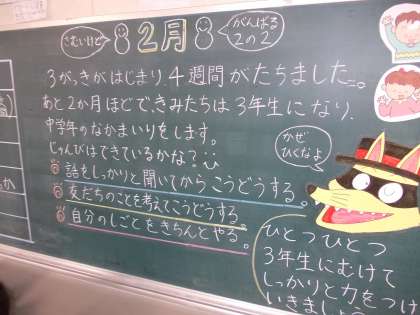 さむいけど
2月
がんばる
2の2
3がっきがはじまり、4週間がたちました。
あと2か月ほどで、きみたちは3年生になり、
中学年のなかまいりをします。
じゅんびはできているかな?
話をしっかりと聞いてからこうどうする。
友だちのことを考えてこうどうする。
自分のしごとをきちんとやる。
かぜ
ひくなよ
ひとつひとつ
3年生にむけて
しっかりと力をつけ
いきましょう